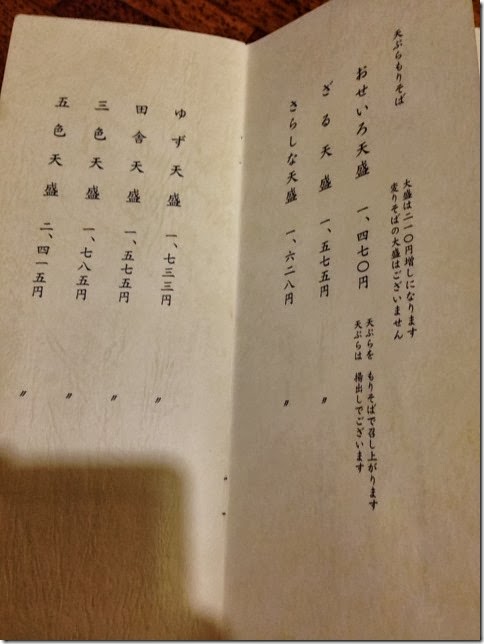 天ぷらもりそば
大盛は二一〇円増しになります
変りそばの大盛はございません
おせいろ天盛 一、四七〇円
天ぷらを もりそばで召し上がります
天ぷらは 揚出しでございます
ざる天盛 一、五七五円 〃
さらしな天盛 一、六二八円 〃
ゆず天盛 一、七三三円 〃
田舎天盛 一、五七五円 〃
三色天盛 一、七八五円 〃
五色天盛 二、四一五円 〃